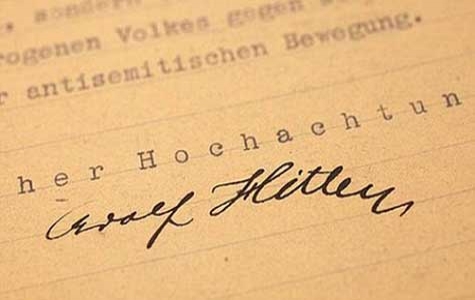 sondern
rogenen Volkes gegen
r antisemitischen Bewegung.
her Hochachtun
Adolf Hitler